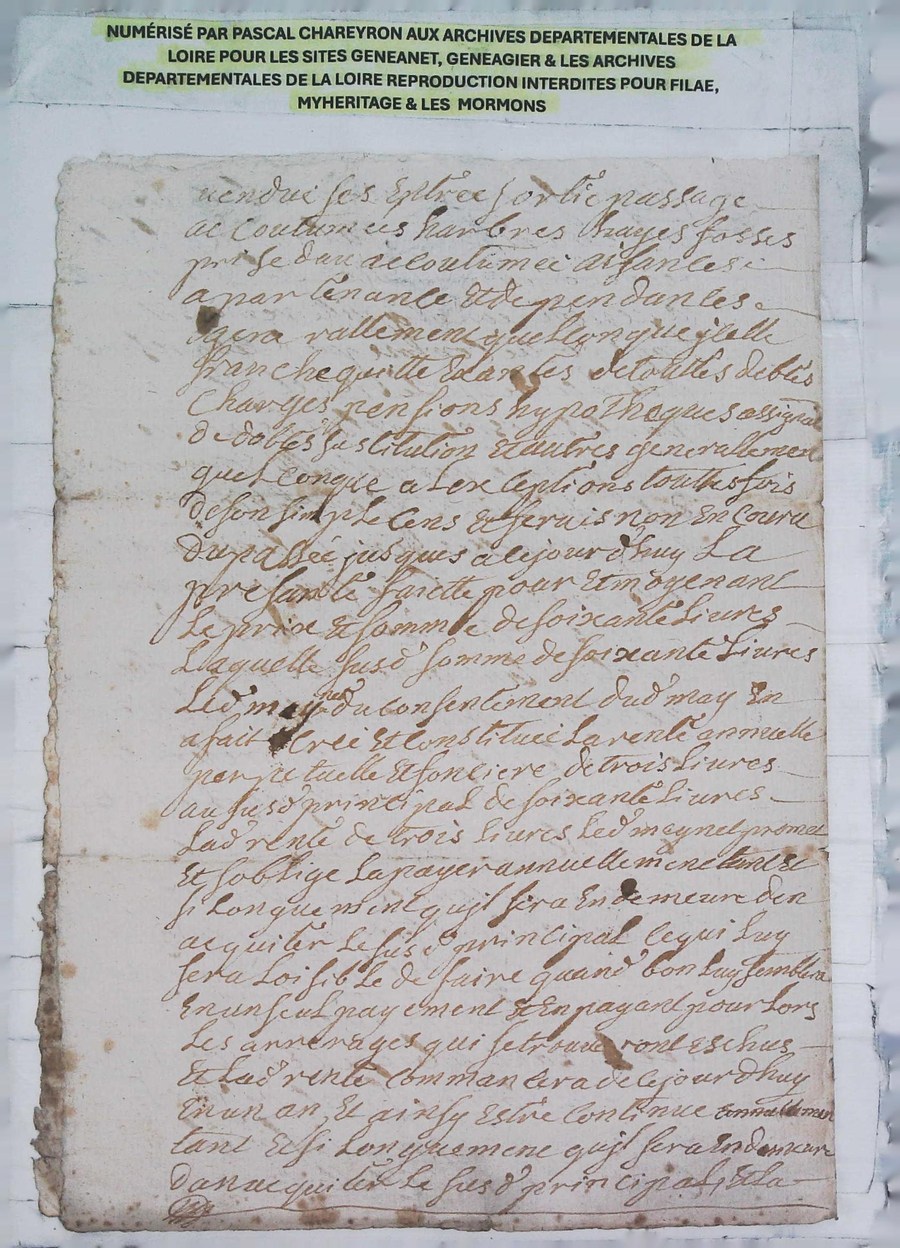 NUMÉRISÉ PAR PASCAL CHAREYRON AUX ARCHIVES DEPARTEMENTALES DE LA
LOIRE POUR LES SITES GENEANET, GENEAGIER & LES ARCHIVES
DEPARTEMENTALES DE LA LOIRE REPRODUCTION INTERDITES POUR FILAE,
MYHERITAGE & LES MORMONS
vendue ses Entrée sortie passage
accoutumées harbres hayes fosses
prise deau accoutumée aisances
apartenance Et dependances
generallement quelconque jcelle
franche quitte Exantes de touttes debtes
Charges pensions hypotheques assignat
de dobtes sustitution Et autres generallement
quelconque a lexceptions touttesfois
de son simple cens & servis non Encouru
du passée jusques a cejourdhuy La
presante faitte pour Et moyenant
Le prix & somme de soixante Livres
Laquelle susd somme de soixante Livres
Led du consentement dud may En
a fait Créé Et Constitué La rente annuelle
perpetuelle & fonciere de trois Livres
au susd principal de soixante Livres
Lad rente de trois Livres Led meynet promet
Et soblige La payer annuellement tant Et
si Longuement quil sera En demeure den
acquiter Le susd principal ce qui Luy
sera Loisible de faire quand bon Luy semblera
En un seul payement & En payant pour Lors
Les arrerages qui se trouveront Eschus
Et Lad rente commancera de cejourdhuy
En un an, Et ainsy Estre continue annuellement
tant Et si Longuement quil sera En demeure
danacquiter Le susd principal, & La